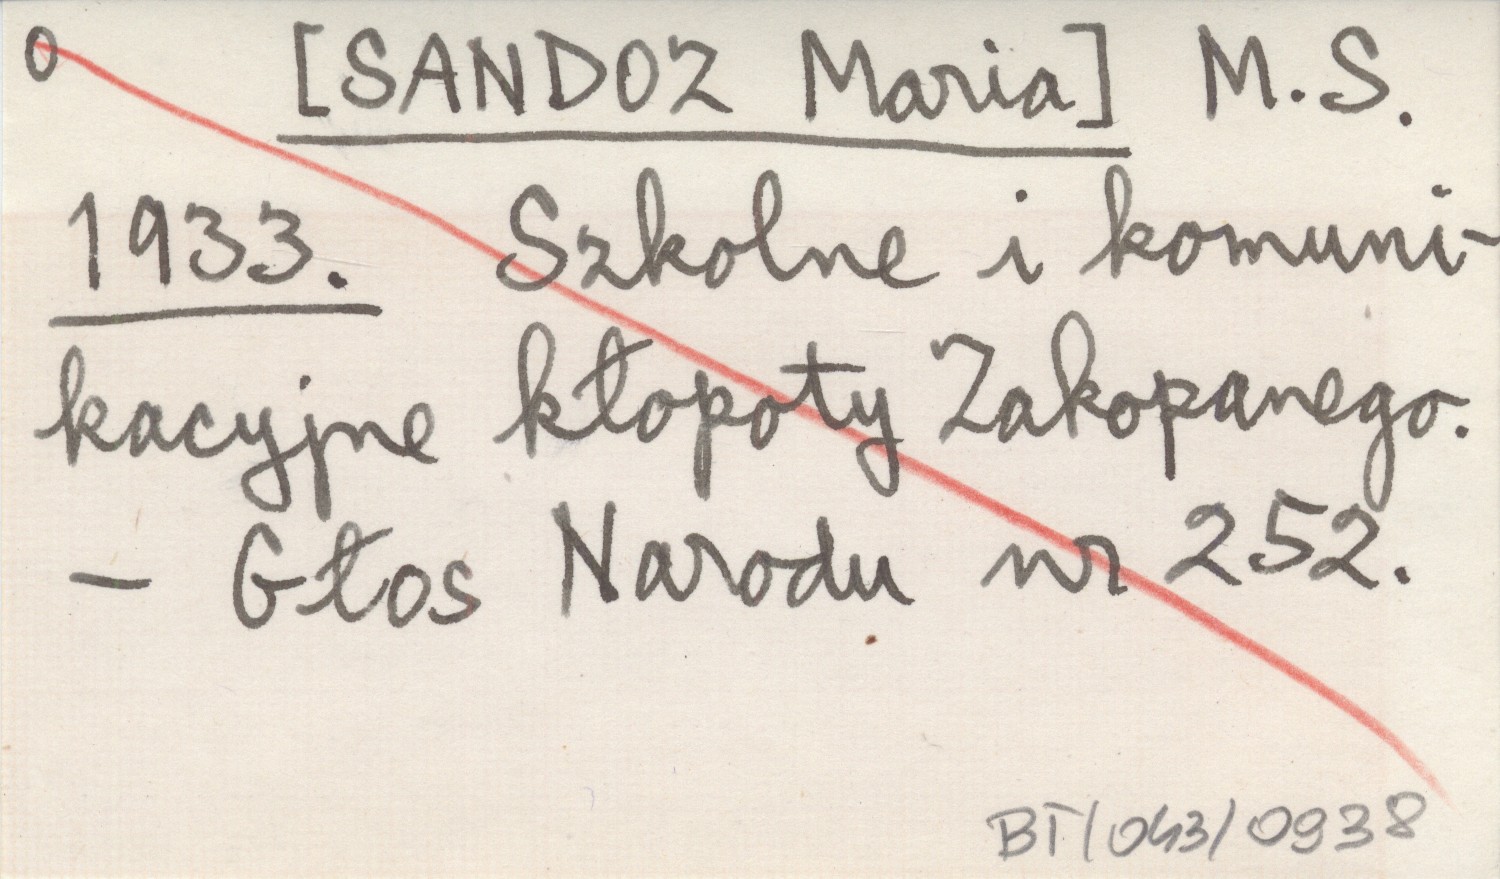 0 [SANDOZ Maria] M.S.
1933. Szkolne i komuni-
kacyjne kłopoty Zakopanego.
– Głos Narodu nr 252.
BT/043/0938